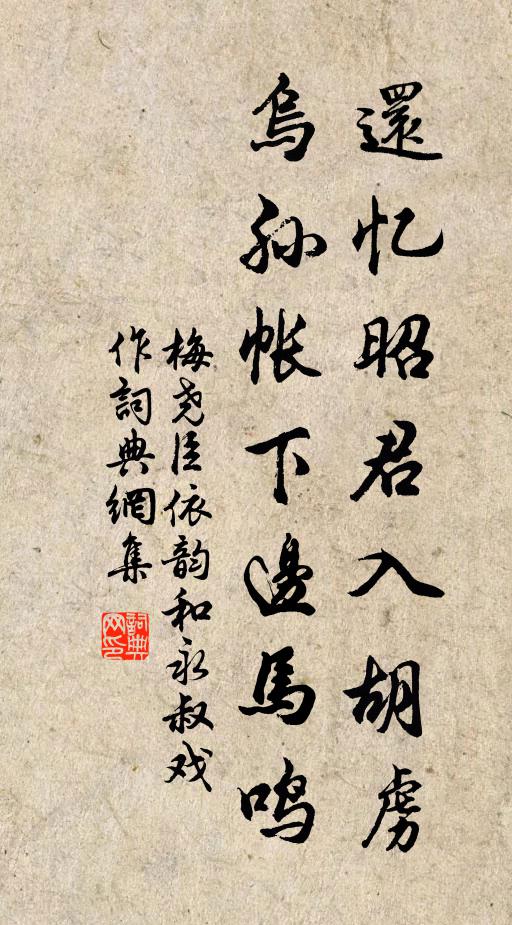 還忆昭君入胡虏
烏孙帐下邊馬鸣
梅尧臣依韵和永叔戏
作詞典網集
詞典网印